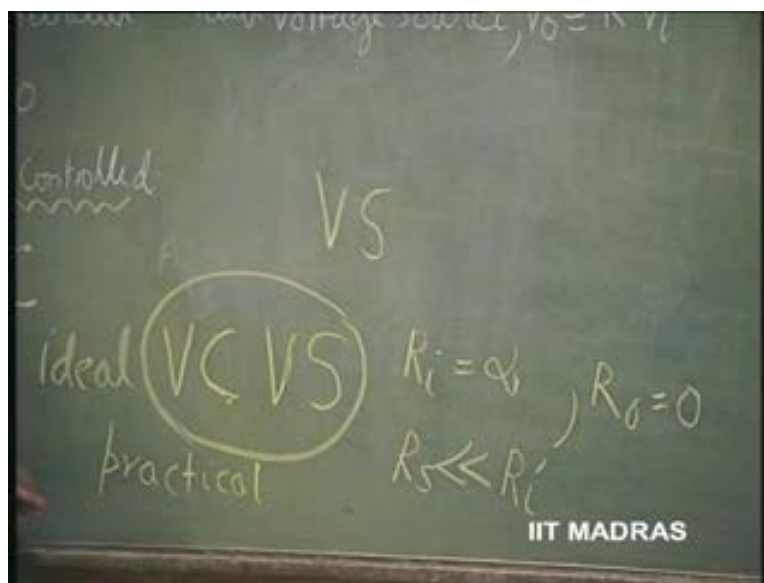 voltage source, Vo = K Vi
Controlled
VS
ideal VCVS Ri = α, Ro = 0
practical Rs << Ri
IIT MADRAS